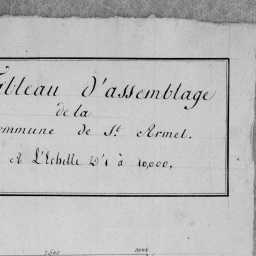 Tableau D'assemblage
de la
Commune de St. Armel.
A L'Echelle D'1 à 10,000.